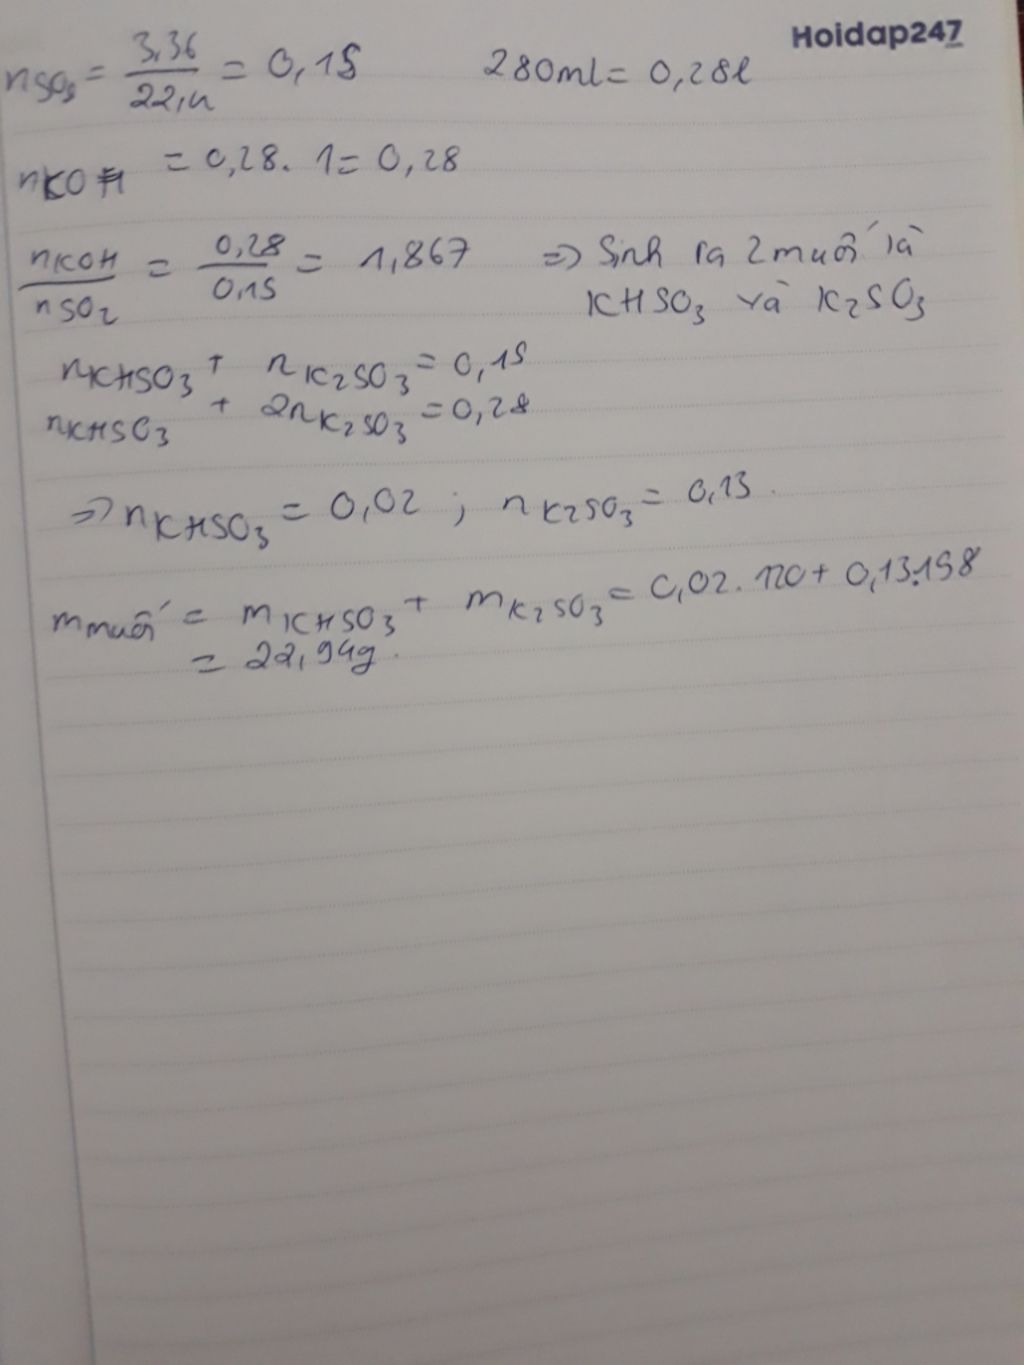 Hoidap247
nSO₃ = 3,36/22,4 = 0,15 280ml = 0,28l
nKOH = 0,28. 1 = 0,28
nKOH/nSO₂ = 0,28/0,15 = 1,867 => Sinh ra 2 muối là
KHSO₃ và K₂SO₃
nKHSO₃ + nK₂SO₃ = 0,15
nKHSO₃ + 2nK₂SO₃ = 0,28
=> nKHSO₃ = 0,02 ; nK₂SO₃ = 0,13.
mmuối = mKHSO₃ + mK₂SO₃ = 0,02. 120 + 0,13.158
= 22,94g.